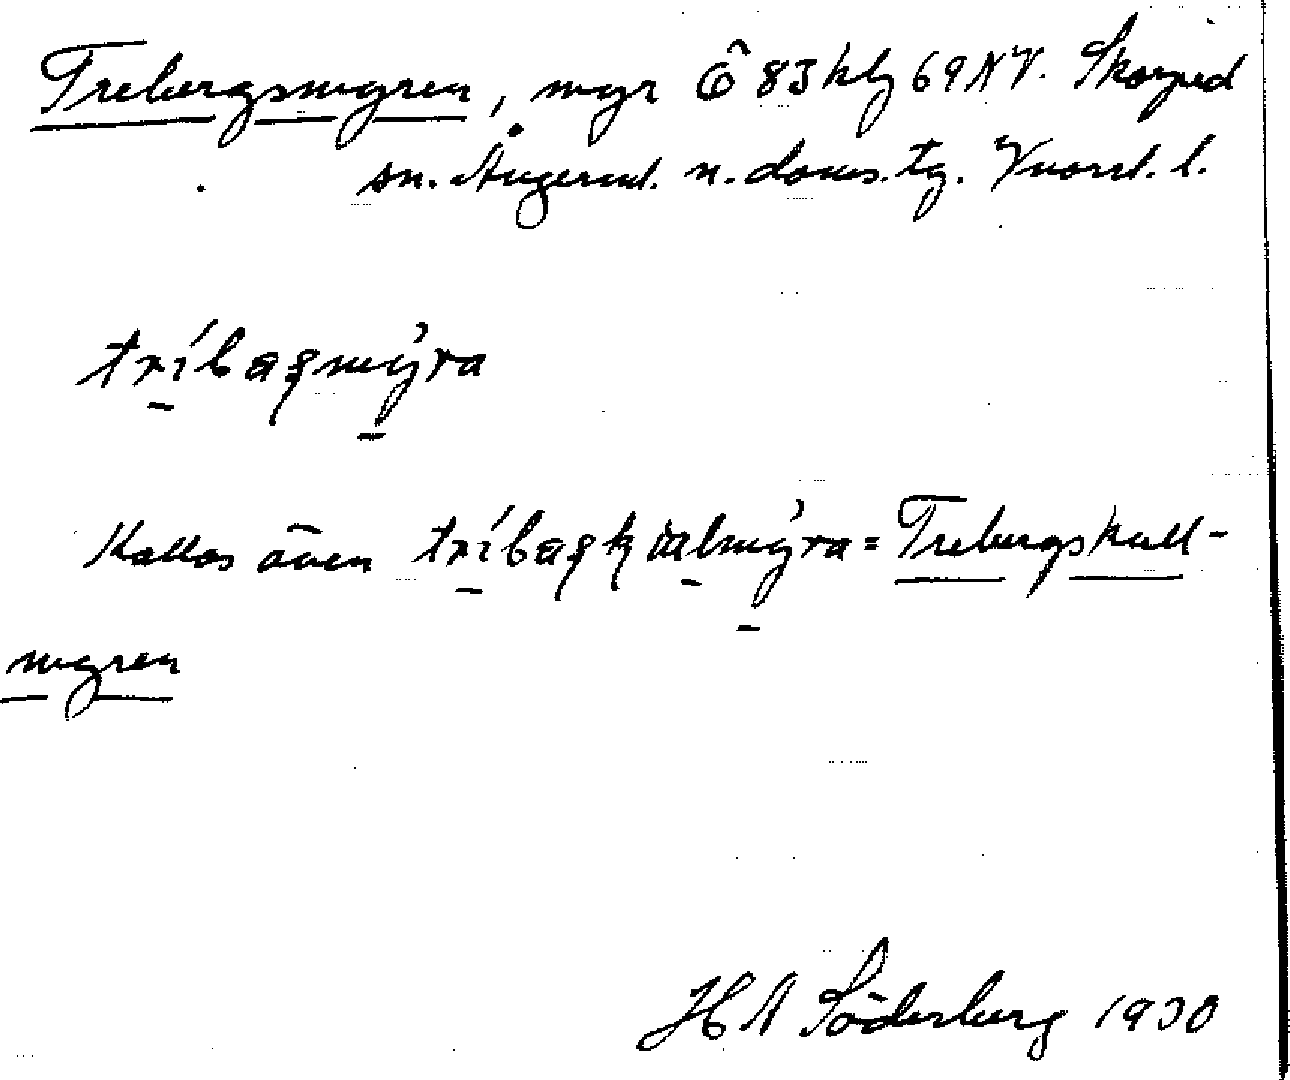 Trebergsmyren, myr Ö 83 hbj 69 NV. Skorped
sn. Ångerml. n. doms. tg. Vnorrl. l.
tríbaʂmýra
Kallas även tríbaʂkalmýra = Trebergskall-
myren
H A Söderberg 1930